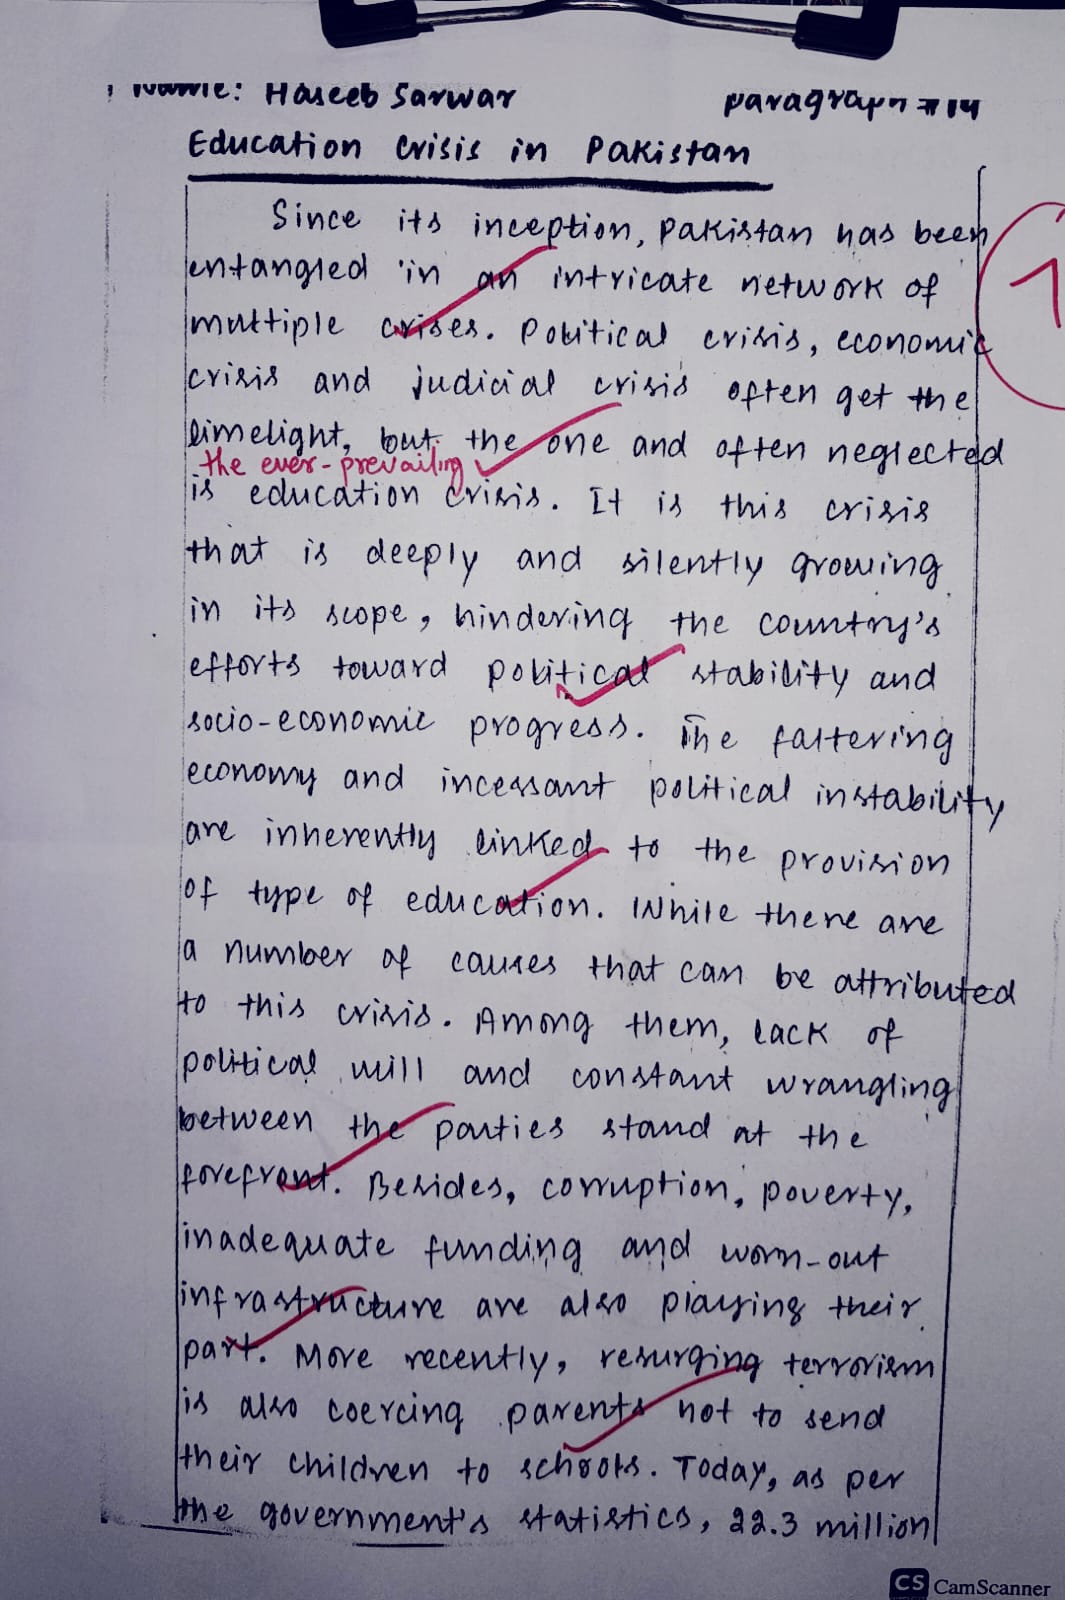 Name: Haseeb Sarwar paragraph #14
Education crisis in Pakistan
Since its inception, Pakistan has been
entangled in an intricate network of
multiple crises. Political crisis, economic
crisis and judicial crisis often get the
limelight, but the one and often neglected
the ever-prevailing
is education crisis. It is this crisis
that is deeply and silently growing
in its scope, hindering the country's
efforts toward political stability and
socio-economic progress. The faltering
economy and incessant political instability
are inherently linked to the provision
of type of education. While there are
a number of causes that can be attributed
to this crisis. Among them, lack of
political will and constant wrangling
between the parties stand at the
forefront. Besides, corruption, poverty,
inadequate funding and worn-out
infrastructure are also playing their
part. More recently, resurging terrorism
is also coercing parents not to send
their children to schools. Today, as per
the government's statistics, 22.3 million
CS CamScanner